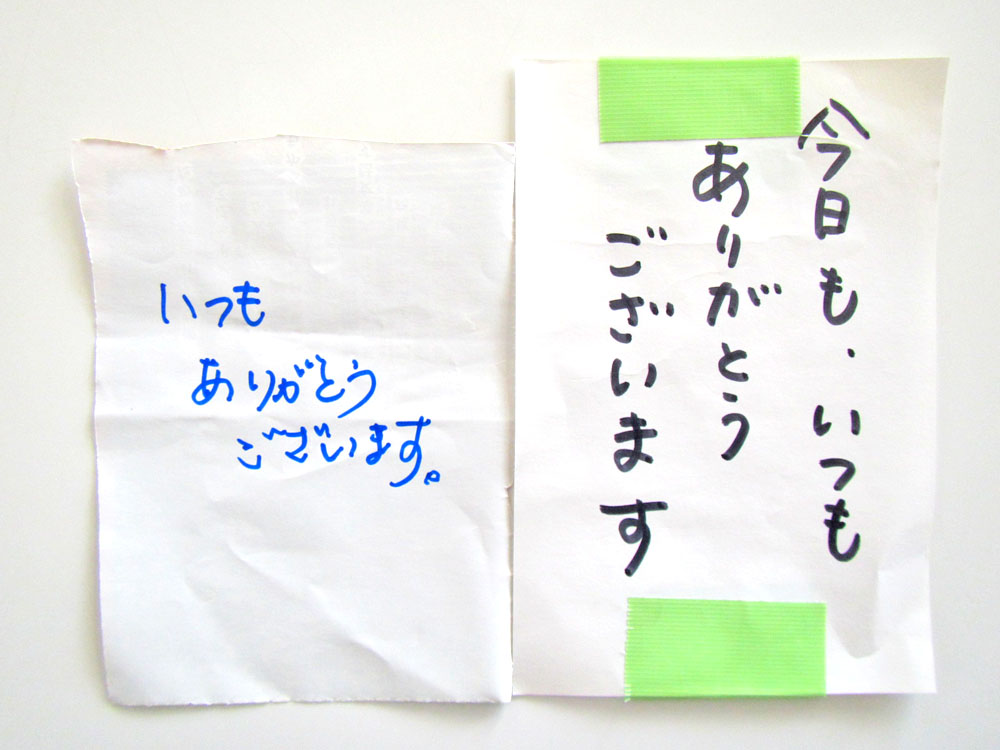 いつも
ありがとう
ございます。
今日も、いつも
ありがとう
ございます